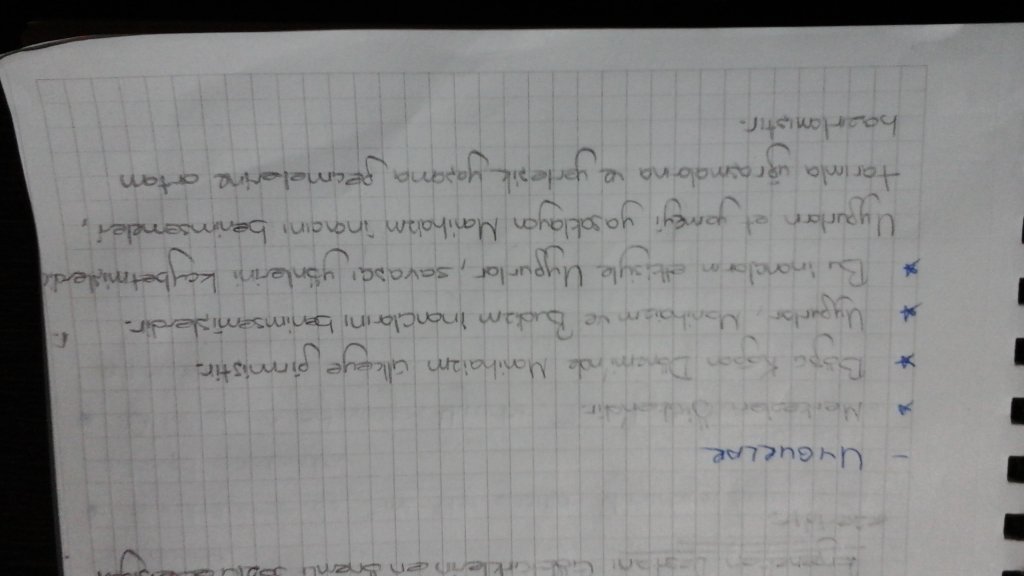 Ergenekon Destanı Göktürklerin en önemli
- UYGURLAR
* Merkezleri Ötüken'dir.
* Bögü Kağan Döneminde Manihaizm ülkeye girmiştir.
* Uygurlar, Manihaizm ve Budizm inançlarını benimsemişlerdir.
* Bu inançların etkisiyle Uygurlar, savaşçı yönlerini kaybetmişlerdir
Uygurları et yemeği yasaklayan Manihaizm inancını benimsemeleri,
tarımla uğraşmalarına ve yerleşik yaşama geçmelerine ortam
hazırlamıştır.